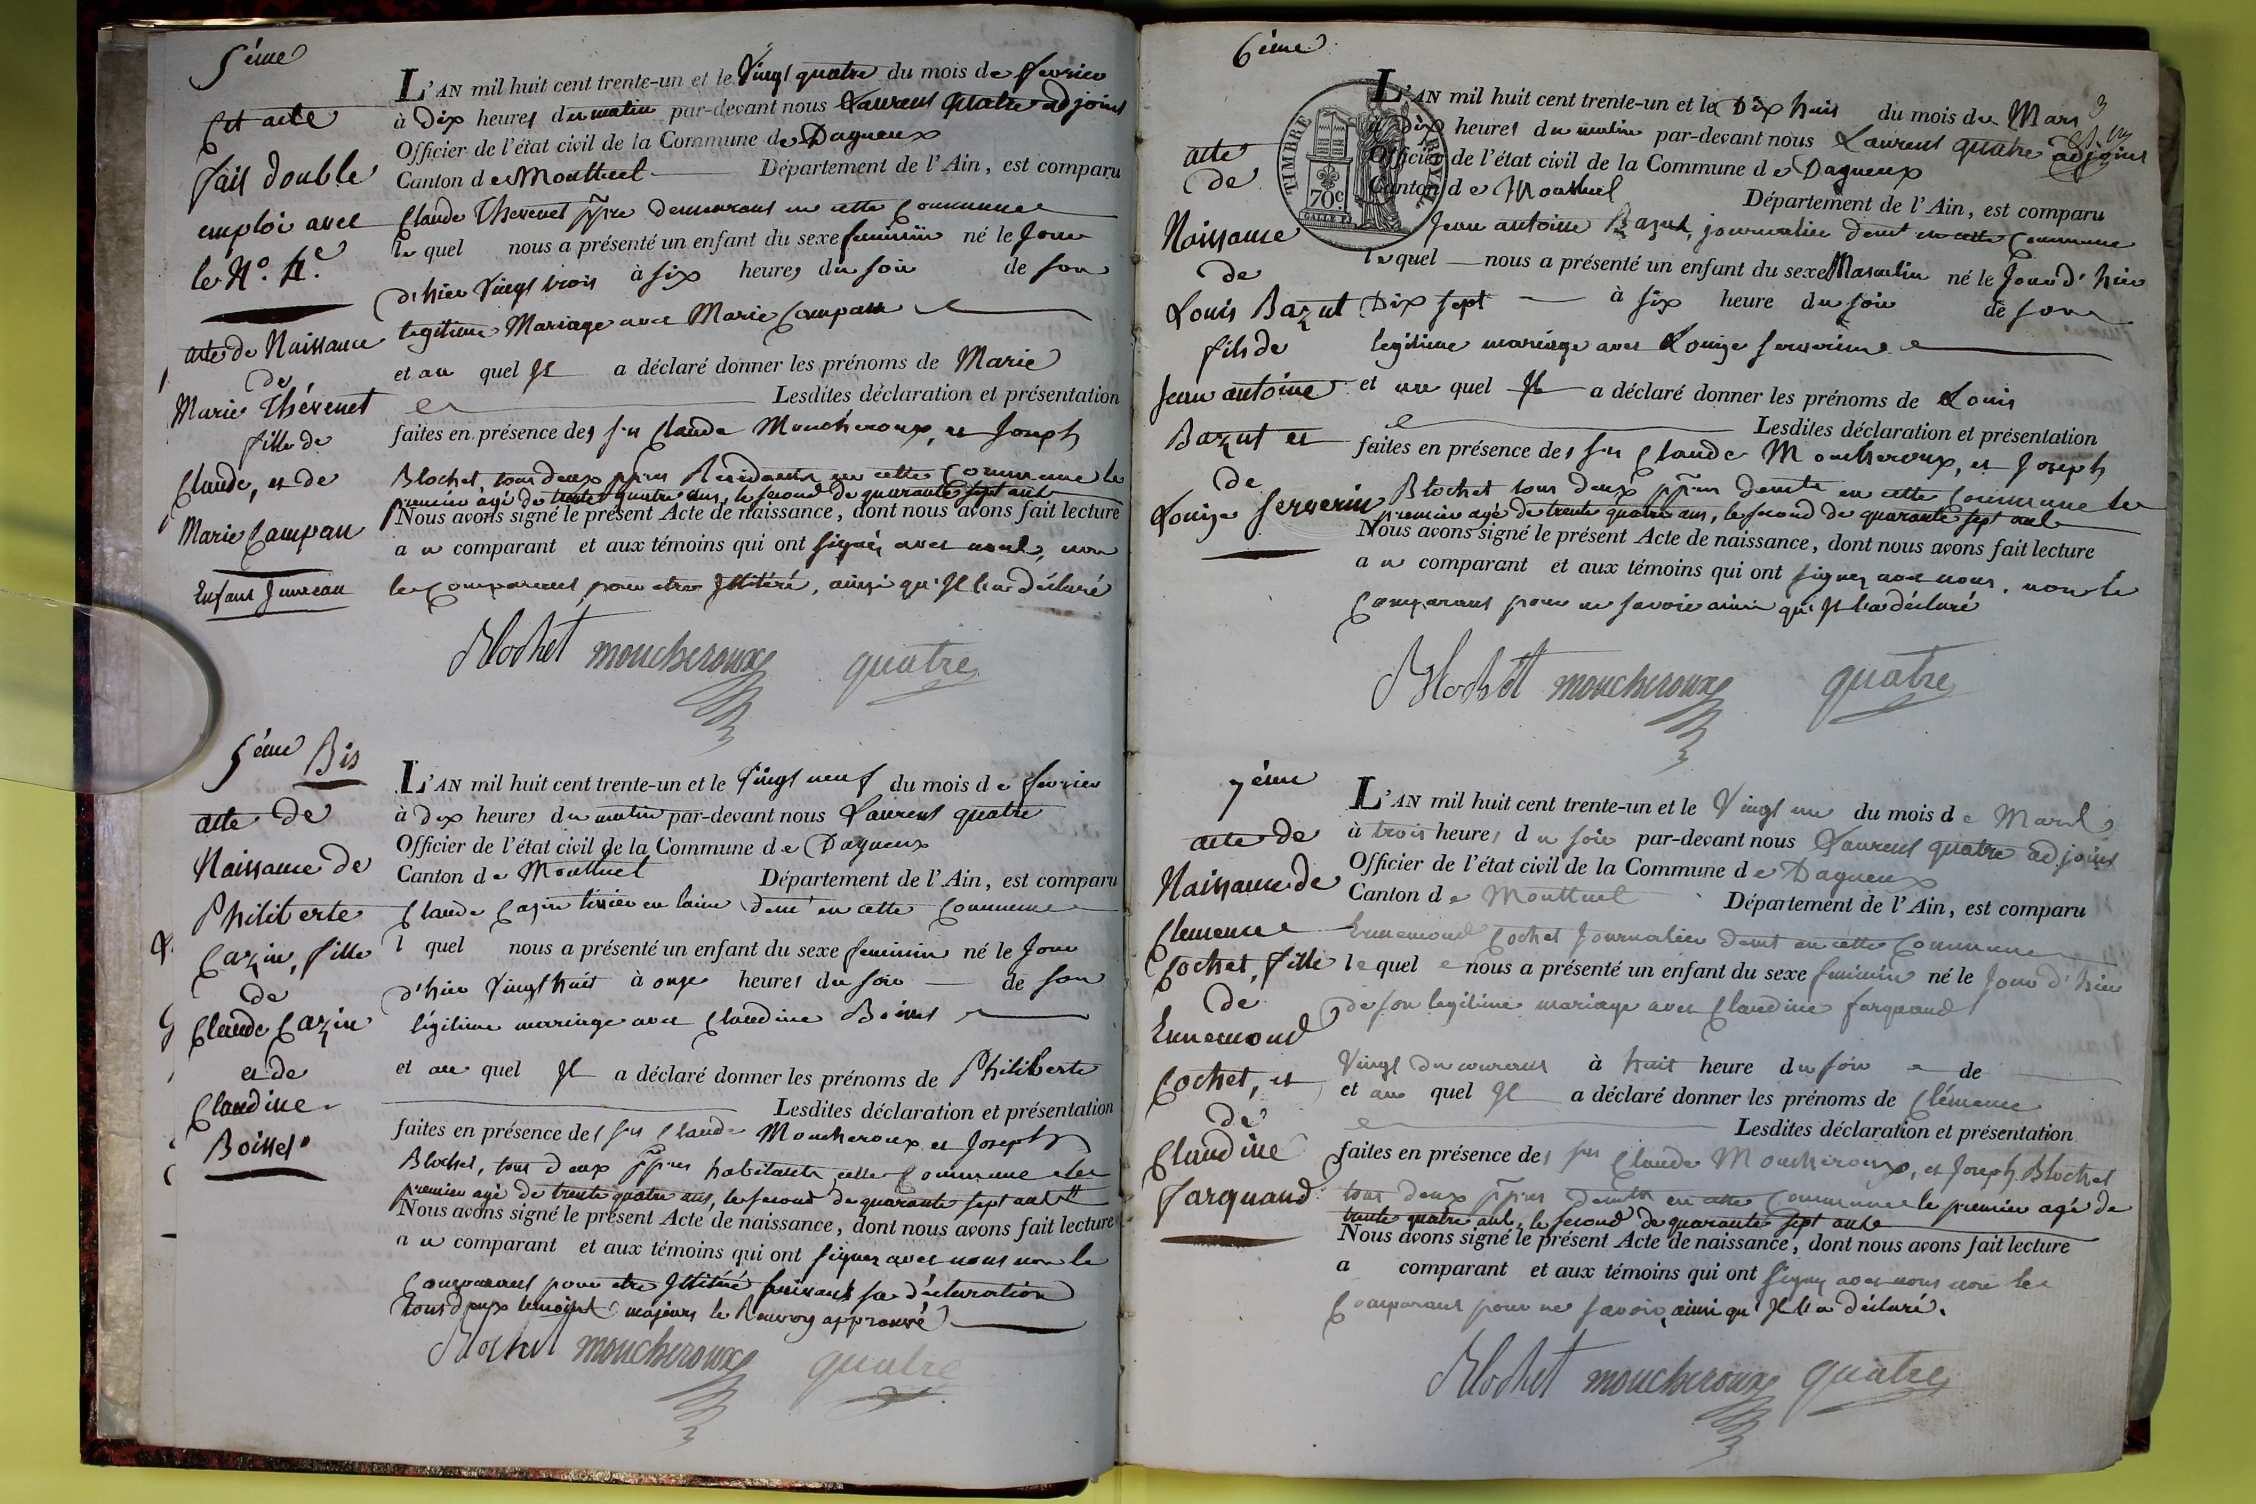 5ème
Cet acte
fait double
emploi avec
le N°. 4e.
acte de Naissance
de
Marie Thévenet
fille de
Claude, et de
Marie Campan
Enfant Jumeau
L'AN mil huit cent trente-un et le Vingt quatre du mois de fevrier
à Dix heures du matin par-devant nous Laurent quatre adjoint
Officier de l'état civil de la Commune de Dagneux
Canton de Montluel Département de l'Ain, est comparu
Claude Thevenet ppre demeurant en cette Commune
le quel nous a présenté un enfant du sexe feminin né le Jour
d'hier Vingt trois à six heures du soir de son
legitime Mariage avec Marie Campan
et au quel Il a déclaré donner les prénoms de Marie
Lesdites déclaration et présentation
faites en présence des srs Claude Moucheroux, et Joseph
Blochet, tous deux ppres Résidants en cette Commune le
premier agé de trente quatre ans, le second de quarante sept ans
Nous avons signé le présent Acte de naissance, dont nous avons fait lecture
au comparant et aux témoins qui ont signés avec nous, non
le Comparant pour etre Illitéré, ainsi qu'Il l'a déclaré
Blochet moucheroux quatre
5ème Bis
acte de
Naissance de
Philiberte
Cazin, fille
de
Claude Cazin
et de
Claudine
Boisset
L'AN mil huit cent trente-un et le Vingt neuf du mois de fevrier
à dix heures du matin par-devant nous Laurent quatre
Officier de l'état civil de la Commune de Dagneux
Canton de Montluel Département de l'Ain, est comparu
Claude Cazin tissier en laine demt en cette Commune
l quel nous a présenté un enfant du sexe feminin né le Jour
d'hier Vingt huit à onze heures du soir de son
légitime mariage avec Claudine Boisset
et au quel Il a déclaré donner les prénoms de Philiberte
Lesdites déclaration et présentation
faites en présence des srs Claude Moucheroux et Joseph
Blochet, tous deux ppres habitants cette Commune le
premier agé de trente quatre ans, le second de quarante sept ans
Nous avons signé le présent Acte de naissance, dont nous avons fait lecture
au comparant et aux témoins qui ont signez avec nous non le
Comparant pour etre Illitéré suivant sa déclaration
tous deux temoins majeurs le Renvoy approuvé
Blochet moucheroux quatre
6ème
3
TIMBRE ROYAL
70c.
acte
de
Naissance
de
Louis Bazut
fils de
Jean antoine
Bazut et
de
Louize Serverin
L'AN mil huit cent trente-un et le Dix huit du mois de Mars
à Dix heures du matin par-devant nous Laurent quatre adjoint
Officier de l'état civil de la Commune de Dagneux
Canton de Montluel Département de l'Ain, est comparu
Jean antoine Bazut, journalier demt en cette Commune
le quel nous a présenté un enfant du sexe Masculin né le Jour d'hier
Dix sept à six heure du soir de son
legitime mariage avec Louize Serverine
et au quel Il a déclaré donner les prénoms de Louis
Lesdites déclaration et présentation
faites en présence des srs Claude Moucheroux, et Joseph
Blochet tous deux ppres demts en cette Commune le
premier agé de trente quatre ans, le second de quarante sept ans
Nous avons signé le présent Acte de naissance, dont nous avons fait lecture
au comparant et aux témoins qui ont signez avec nous, non le
Comparant pour ne savoir ainsi qu'Il l'a déclaré
Blochet moucheroux quatre
7ème
acte de
Naissance de
Clemence
Cochet, fille
de
Ennemond
Cochet, et
de
Claudine
farquand
L'AN mil huit cent trente-un et le Vingt un du mois de Mars
à trois heures du soir par-devant nous Laurent quatre adjoint
Officier de l'état civil de la Commune de Dagneux
Canton de Montluel Département de l'Ain, est comparu
Ennemond Cochet Journalier demt en cette Commune
le quel nous a présenté un enfant du sexe feminin né le Jour d'hier
de son legitime mariage avec Claudine farquand
Vingt du courant à huit heure du soir de
et au quel Il a déclaré donner les prénoms de Clémence
Lesdites déclaration et présentation
faites en présence des srs Claude Moucheroux, et Joseph Blochet
tous deux ppres demts en cette Commune le premier agé de
trente quatre ans, le second de quarante sept ans
Nous avons signé le présent Acte de naissance, dont nous avons fait lecture
a comparant et aux témoins qui ont signez avec nous non le
Comparant pour ne savoir, ainsi qu'Il l'a déclaré.
Blochet moucheroux quatre